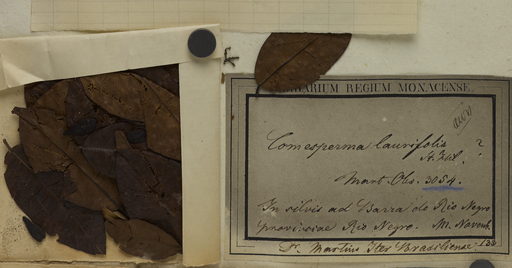 HERBARIUM REGIUM MONACENSE.
Comesperma laurifolia ?
Mart. Obs. 3054.
In silvis ad Barra do Rio Negro
provinciae Rio Negro. M. Novemb.
Dr. Martius Iter Brasiliense.